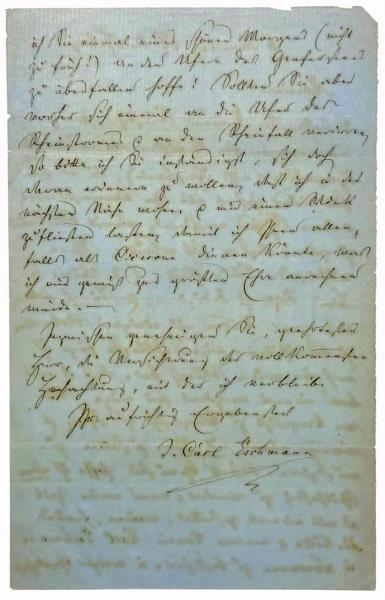 ich Sie einmal eines schönen Morgens (nicht
zu früh!) an den Ufern des Genfersees
zu überfallen hoffe! Sollten Sie aber
vorher sich einmal an die Ufer des
Rheinstromes & an den Rheinfall verirren,
so bitte ich Sie inständigst, sich doch
daran erinnern zu wollen, daß ich in der
nächsten Nähe wohne, & mir einen Wink
zufließen lassen, damit ich Ihnen allen-
falls als Cicerone dienen könnte, was
ich mir gewiß zur größten Ehre anrechnen
würde. —
Inzwischen genehmigen Sie, geehrtester
Herr, die Versicherung der vollkommensten
Hochachtung, mit der ich verbleibe
Ihr aufrichtig Ergebenster
J. Carl Eschmann